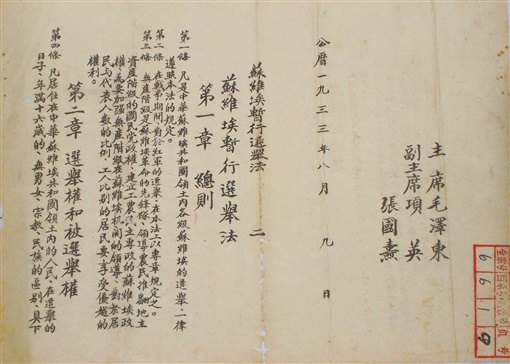 主席毛澤東
副主席項英
張國燾
公曆一九三三年八月九日
蘇維埃暫行選舉法 二
蘇維埃暫行選舉法
第一章 總則
第一條 凡是中華蘇維埃共和國領土內各級蘇維埃的選舉、一律
遵照本法的規定。
第二條 在戰爭期間、對於紅軍的選舉、在本法上以專章規定之。
第三條 無產階級是蘇維埃革命的先鋒隊、領導農民推翻地主
資產階級的國民黨政權、建立工農民主專政的蘇維埃政
權、為要加強無產階級在蘇維埃機關的領導、對於居
民與代表人數的比例、工人比別的居民要享受優越的
權利。
第二章 選舉權和被選舉權
第四條 凡居住在中華蘇維埃共和國領土內的人民、在選舉的
日子、年滿十六歲的、無男女、宗教、民族的區別、具下
6619